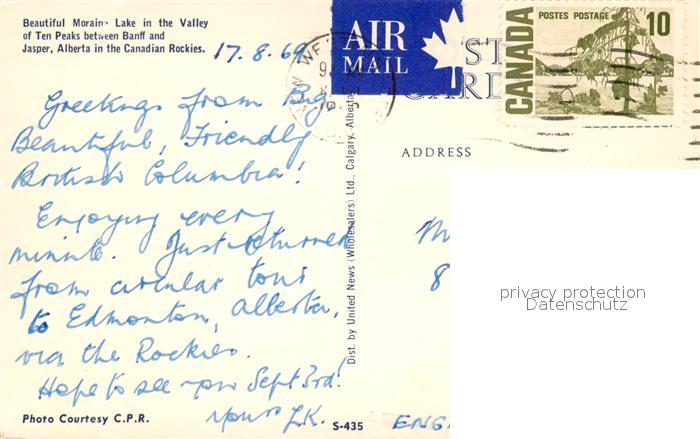 Beautiful Moraine Lake in the Valley
of Ten Peaks between Banff and
Jasper, Alberta in the Canadian Rockies.
17.8.69
AIR
MAIL
CANADA
POSTES POSTAGE
10
ADDRESS
Greetings from Big,
Beautiful, Friendly
British Columbia!
Enjoying every
minute. Just returned
from circular tour
to Edmonton, Alberta,
via the Rockies.
Hope to see you Sept 3rd!
Yours L.K.
Photo Courtesy C.P.R.
S-435
Dist. by United News (Wholesalers) Ltd., Calgary, Alberta
M
8
ENG
privacy protection
Datenschutz